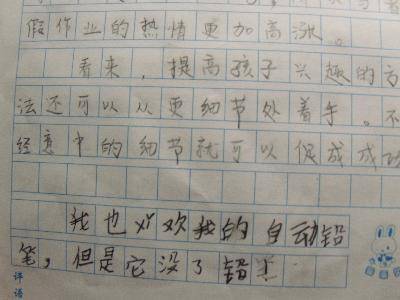 假作业的热情更加高涨。
看来，提高孩子兴趣的方
法还可以从更细节处着手。不
经意中的细节就可以促成成功
我也喜欢我的自动铅
笔，但是它没了铅！
评语